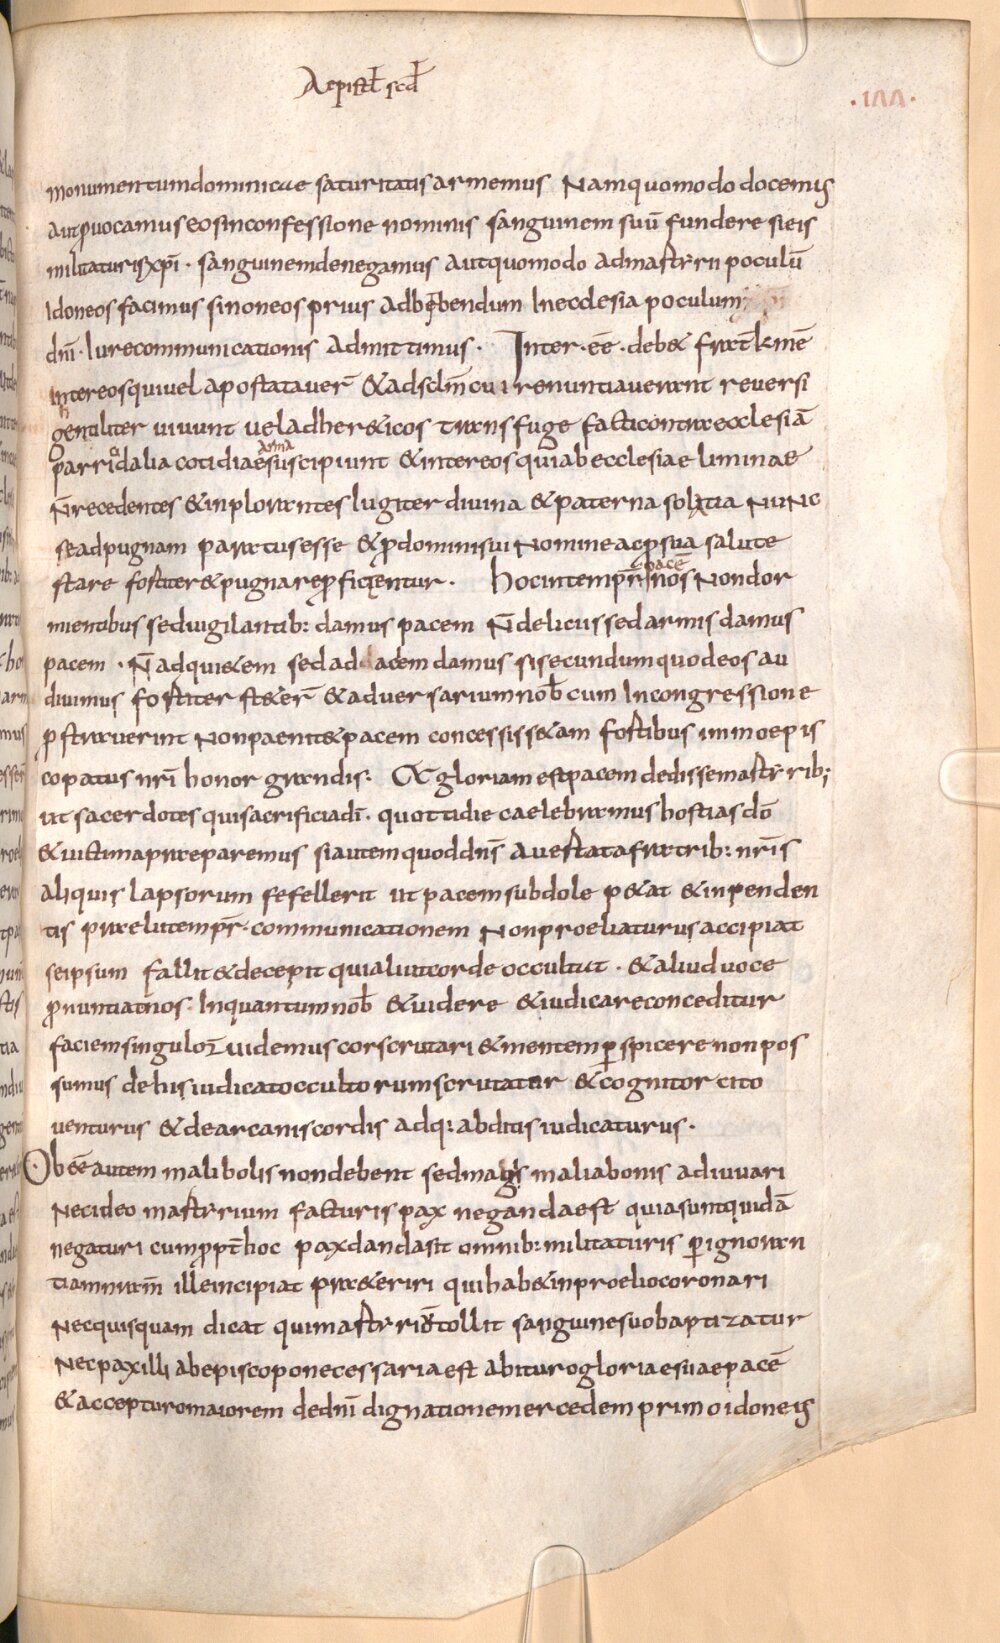 Aepistł scđ
·INN·
monumentum dominicae saturitatis armemus Nam quomodo docemus
aut ꝓuocamus eos in confessione nominis sanguinem suū fundere si eis
militaturis xp̄i · sanguinem denegamus aut quomodo ad mar̄trii poculū
Idoneos facimus si non eos prius ad bibendum In ecclesia poculum
dn̄i · Iure communicationis admittimus · Inter·eē·deb& frat̄ k̄mē
Inter eos qui uel apostatauer̄ & ad sc̄lm̄ cui renuntiauerant reuersi
gentiliter uiuunt uel ad her&icos transfuge facti contra ecclesiā
parricidalia cotidiae arma suscipiunt & inter eos qui ab ecclesiae liminae
n̄ recedentes & inplorantes Iugiter diuina & paterna solatia Nunc
se ad pugnam paratus esse & ꝓ domini sui Nomine ac ꝓ sua salute
stare fortiter & pugnare ꝓficentur · hoc in temp̄r & pacē nos Non dor
mientibus sed uigilantib: damus pacem N̄ deliciis sed armis damus
pacem · N̄ ad qui&em sed ad acem damus si secundum quod eos au
diuimus fortiter st&er̄ & aduersarium nob̄ cum In congressione
ꝓstrauerint Non paenit& pacem concessiss& am fortibus immo epis
copatus nr̄i honor grandis: & gloriam est pacem dedisse mar̄trrib;
ut sacerdotes qui sacrificia dī · quottidie caelebramus hostias dō
& uictima praeparemus si autem quod dn̄s auertat a fratrib: nr̄is
aliquis lapsorum fefellerit ut pacem subdole p&at & inpenden
tis praeliitemp̄r · communicationem Non proeliaturus accipiat
se ipsum fallit & decepit qui aliut corde occultat · & aliud uoce
ꝓnuntiat nos · Inquantum nob̄ & uidere & iudicare conceditur
faciem singuloꝝ uidemus cor scrutari & mentem ꝑspicere non pos
sumus de his iudicat occultorum scrutatur & cognitor cito
uenturus & de arcanis cordis adq: abditis iudicaturus ·
Ob eē autem mali bolis non debent sed magis mali a bonis adiuuari
Nec ideo mar̄trrium facturis pax neganda est quia sunt quidā
negaturi cum ꝓpt̄ hoc pax danda sit omnib: militaturis ꝑ ignoran
tiam nram̄ ille incipiat praeteriri qui hab& in proelio coronari
Nec quisquam dicat qui mar̄tr riū tollit sanguine suo baptizatur
Nec pax illi ab episcopo necessaria est abituro gloriae suae pacē
& accepturo maiorem de dn̄i dignatione mercedem primo idoneus